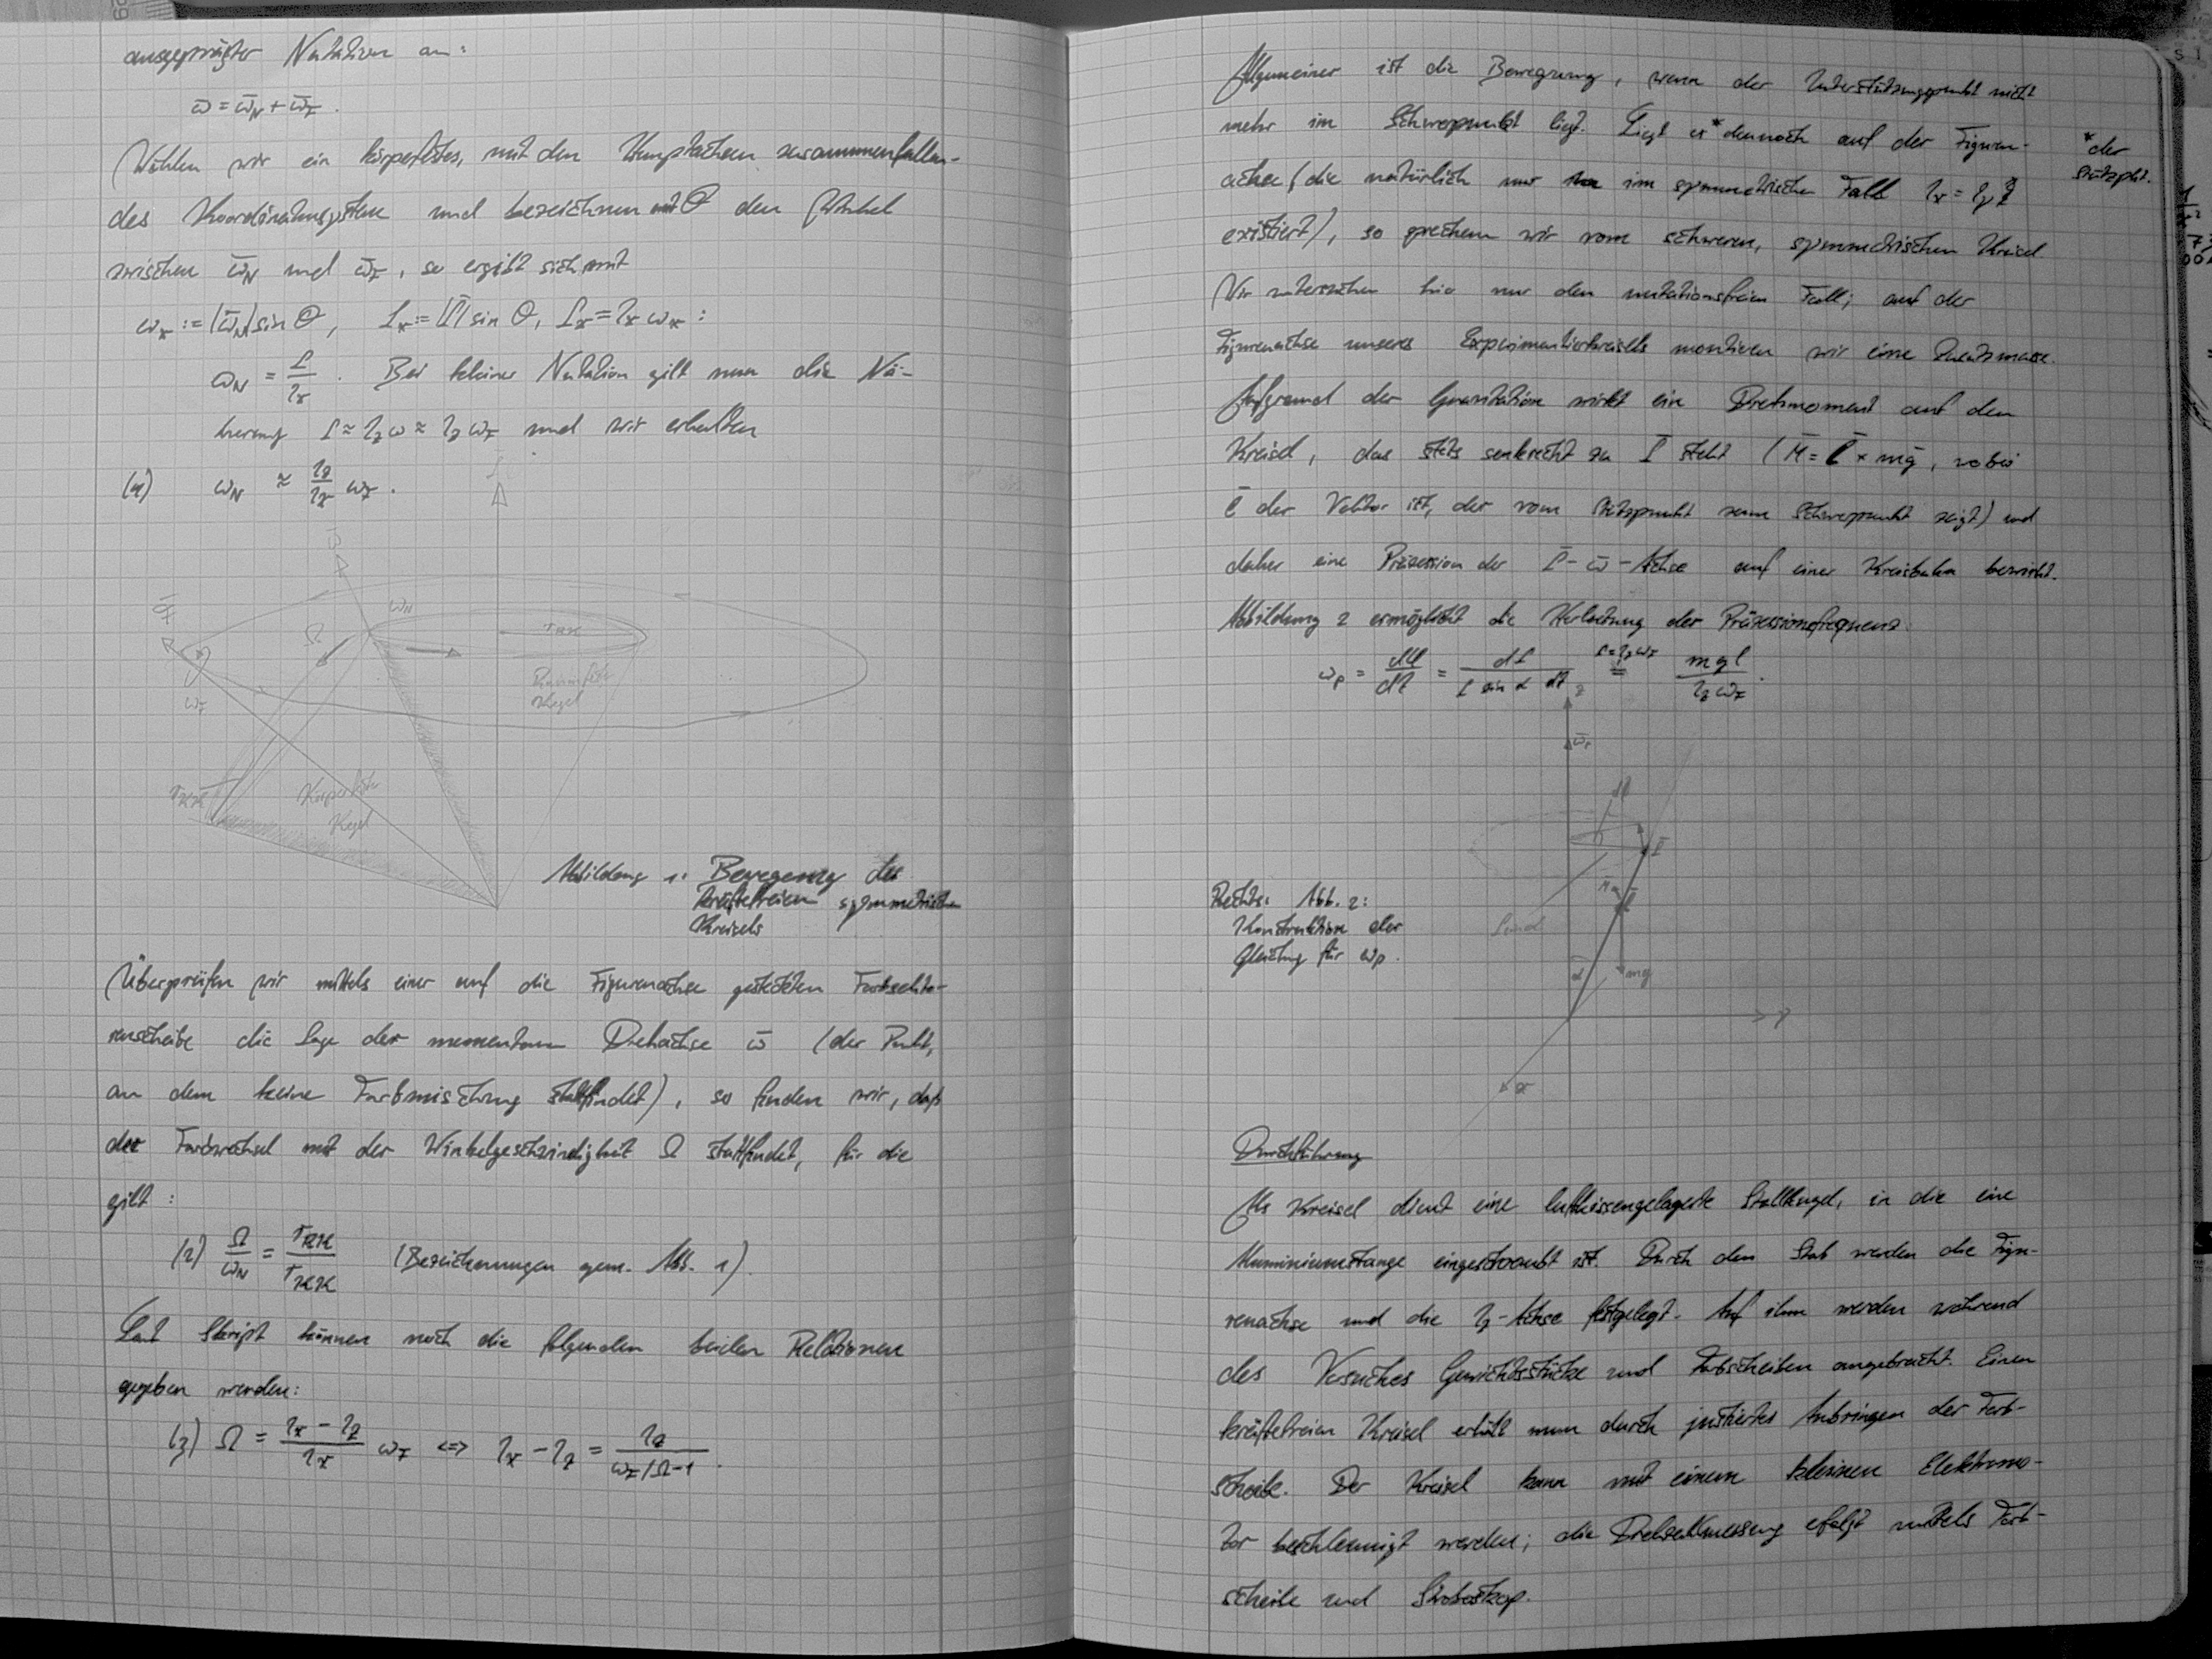 ausgeprägter Nutation an:
ω̄ = ω̄_N + ω̄_F.
Wählen wir ein körperfestes, mit den Hauptachsen zusammenfallen-
des Koordinatensystem und bezeichnen mit Θ den Winkel
zwischen ω̄_N und ω̄_F, so ergibt sich mit
ω_x := |ω̄_N| sin Θ, L_x := |L̄| sin Θ, L_x = I_x ω_x :
ω_N = L/I_x. Bei kleiner Nutation gilt nun die Nä-
herung L ≈ I_z ω ≈ I_z ω_F und wir erhalten
(1) ω_N ≈ I_z/I_x ω_F.
L̄
ω̄
F̄
ω_N
Ω
r_RK
Raumfester
Kegel
ω_F
r_KK
Körperfester
Kegel
Abbildung 1: Bewegung des
kräftefreien symmetrischen
Kreisels
Überprüfen wir mittels einer auf die Figurenachse gesteckten Farbsekto-
renscheibe die Lage der momentanen Drehachse ω̄ (der Punkt,
an dem keine Farbmischung stattfindet), so finden wir, daß
der Farbwechsel mit der Winkelgeschwindigkeit Ω stattfindet, für die
gilt:
(2) Ω/ω_N = r_RK/r_KK (Bezeichnungen gem. Abb. 1).
Laut Skript können noch die folgenden beiden Relationen
gegeben werden:
(3) Ω = (I_x - I_z)/I_x ω_F <=> I_x - I_z = I_z/(ω_F/Ω-1).
Allgemeiner ist die Bewegung, wenn der Unterstützungspunkt nicht
mehr im Schwerpunkt liegt. Liegt er* dennoch auf der Figuren-
*der
Stützpkt.
achse (die natürlich nur im symmetrischen Fall I_x = I_y
existiert), so sprechen wir vom schweren, symmetrischen Kreisel.
Wir untersuchen hier nur den nutationsfreien Fall; auf der
Figurenachse unseres Experimentierkreisels montieren wir eine Zusatzmasse.
Aufgrund der Gravitation wirkt ein Drehmoment auf den
Kreisel, das stets senkrecht zu L̄ steht (M̄ = l̄ × mḡ, wobei
l̄ der Vektor ist, der vom Stützpunkt zum Schwerpunkt zeigt) und
daher eine Präzession der L̄-ω̄-Achse auf einer Kreisbahn bewirkt.
Abbildung 2 ermöglicht die Herleitung der Präzessionsfrequenz:
ω_P = dφ/dt = dL/(L sin α dt) =^{L=I_z ω_F} mgl/(I_z ω_F).
z
ω̄_P
dL̄
L̄
M̄
l̄
L sin α
α
mg
y
x
Rechts: Abb. 2:
Konstruktion der
Gleichung für ω_P.
Durchführung
Als Kreisel dient eine luftkissengelagerte Stahlkugel, in die eine
Aluminiumstange eingeschraubt ist. Durch den Stab werden die Figu-
renachse und die I_z-Achse festgelegt. Auf ihm werden während
des Versuches Gewichtsstücke und Farbscheiben angebracht. Einen
kräftefreien Kreisel erhält man durch justiertes Anbringen der Farb-
scheibe. Der Kreisel kann mit einem kleinen Elektromo-
tor beschleunigt werden; die Drehzahlmessung erfolgt mittels Farb-
scheibe und Stroboskop.